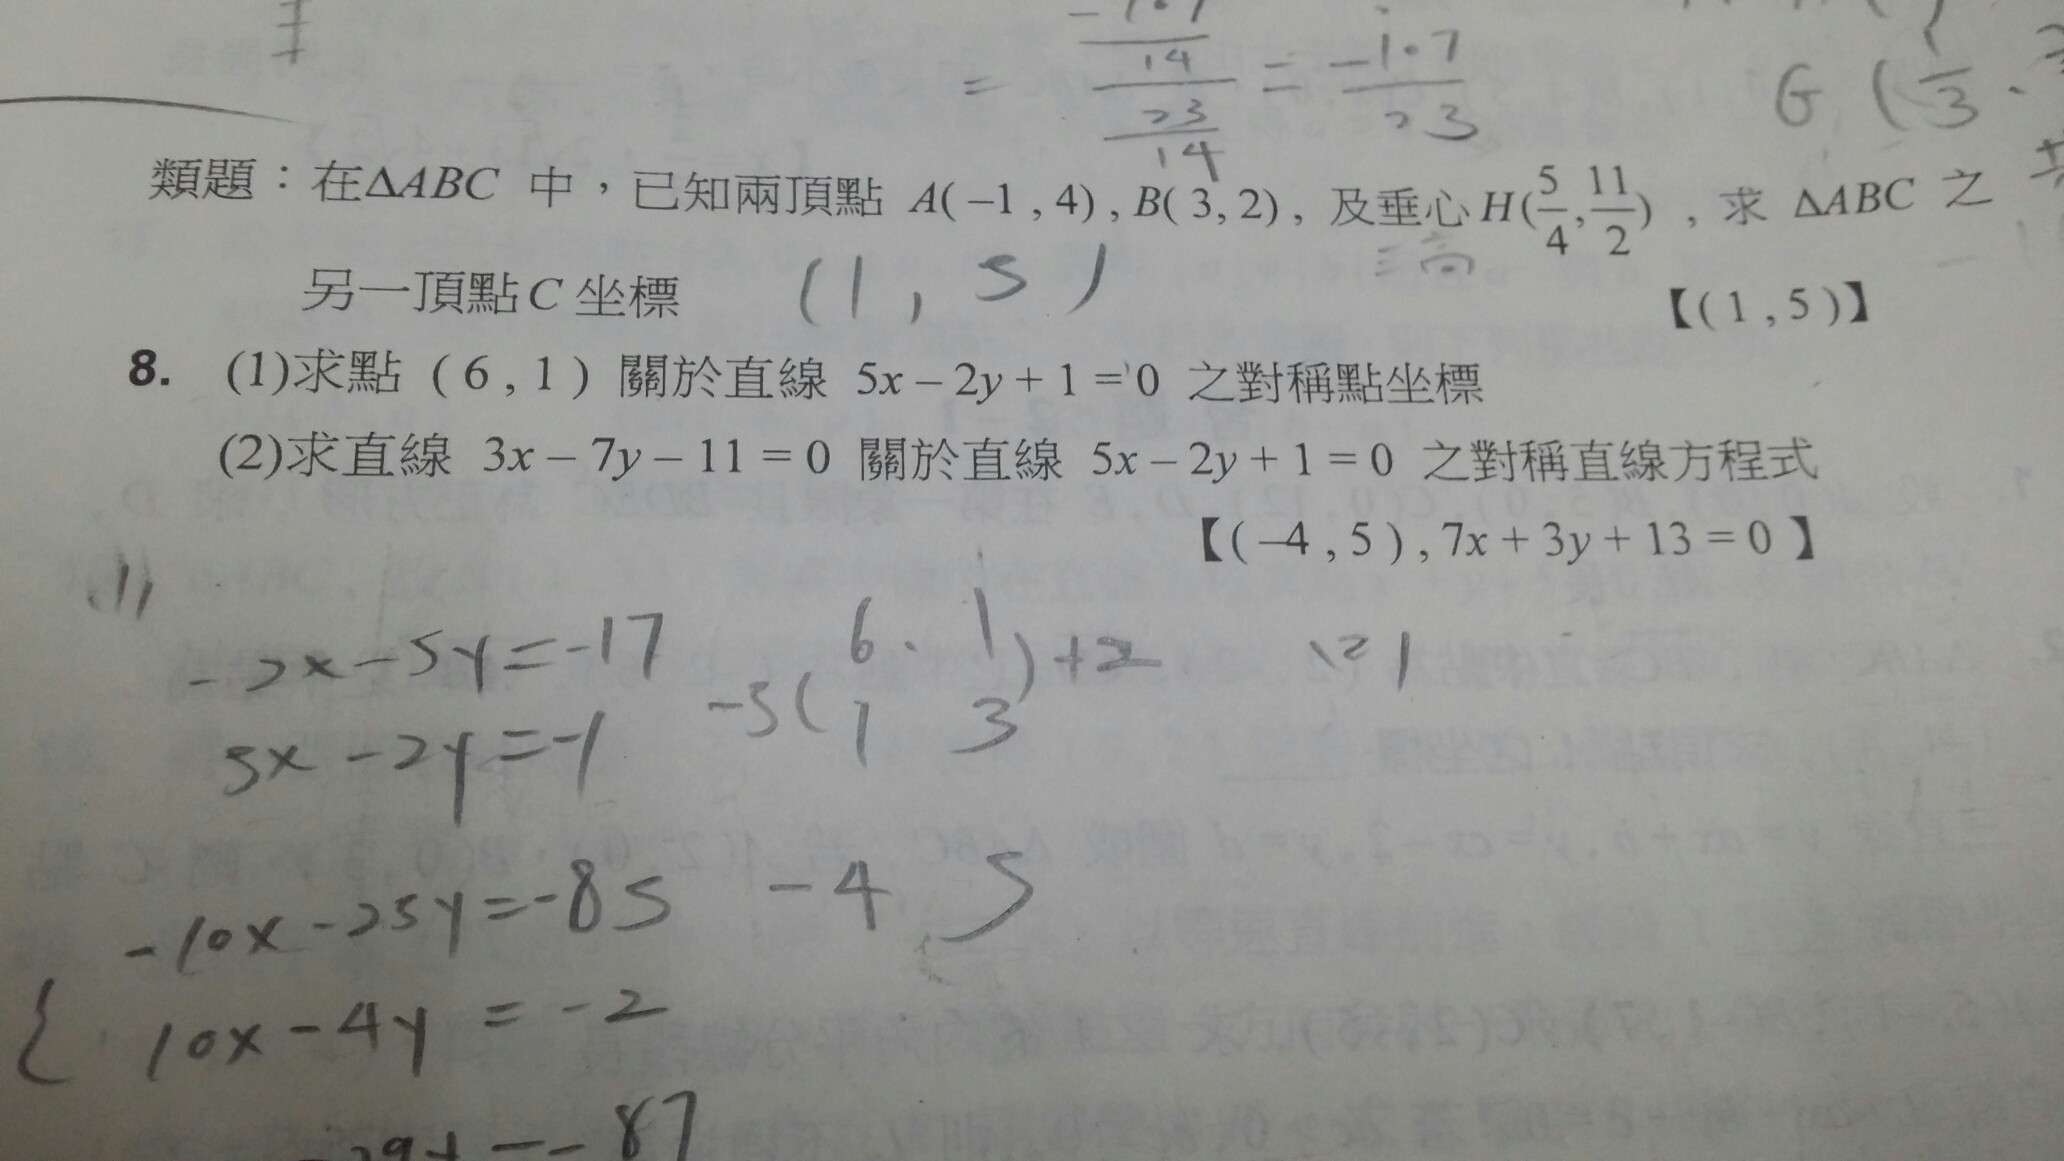 = \frac{\frac{-107}{14}}{\frac{23}{14}} = \frac{-107}{23}
G ( \frac{1}{3} .
類題：在ΔABC 中，已知兩頂點 A( –1 , 4) , B( 3, 2) , 及垂心 H( \frac{5}{4}, \frac{11}{2} ) ，求 ΔABC 之
三高
另一頂點 C 坐標 (1, 5) 【( 1 , 5 )】
8. (1)求點 ( 6 , 1 ) 關於直線 5x – 2y + 1 = 0 之對稱點坐標
(2)求直線 3x – 7y – 11 = 0 關於直線 5x – 2y + 1 = 0 之對稱直線方程式
【( –4 , 5 ) , 7x + 3y + 13 = 0 】
(1)
-2x-5y=-17 6 . 1
-5( )+2 (2)
5x-2y=-1 1 3
-10x-25y=-85 -4 5
{ 10x-4y = -2
-29y=-87